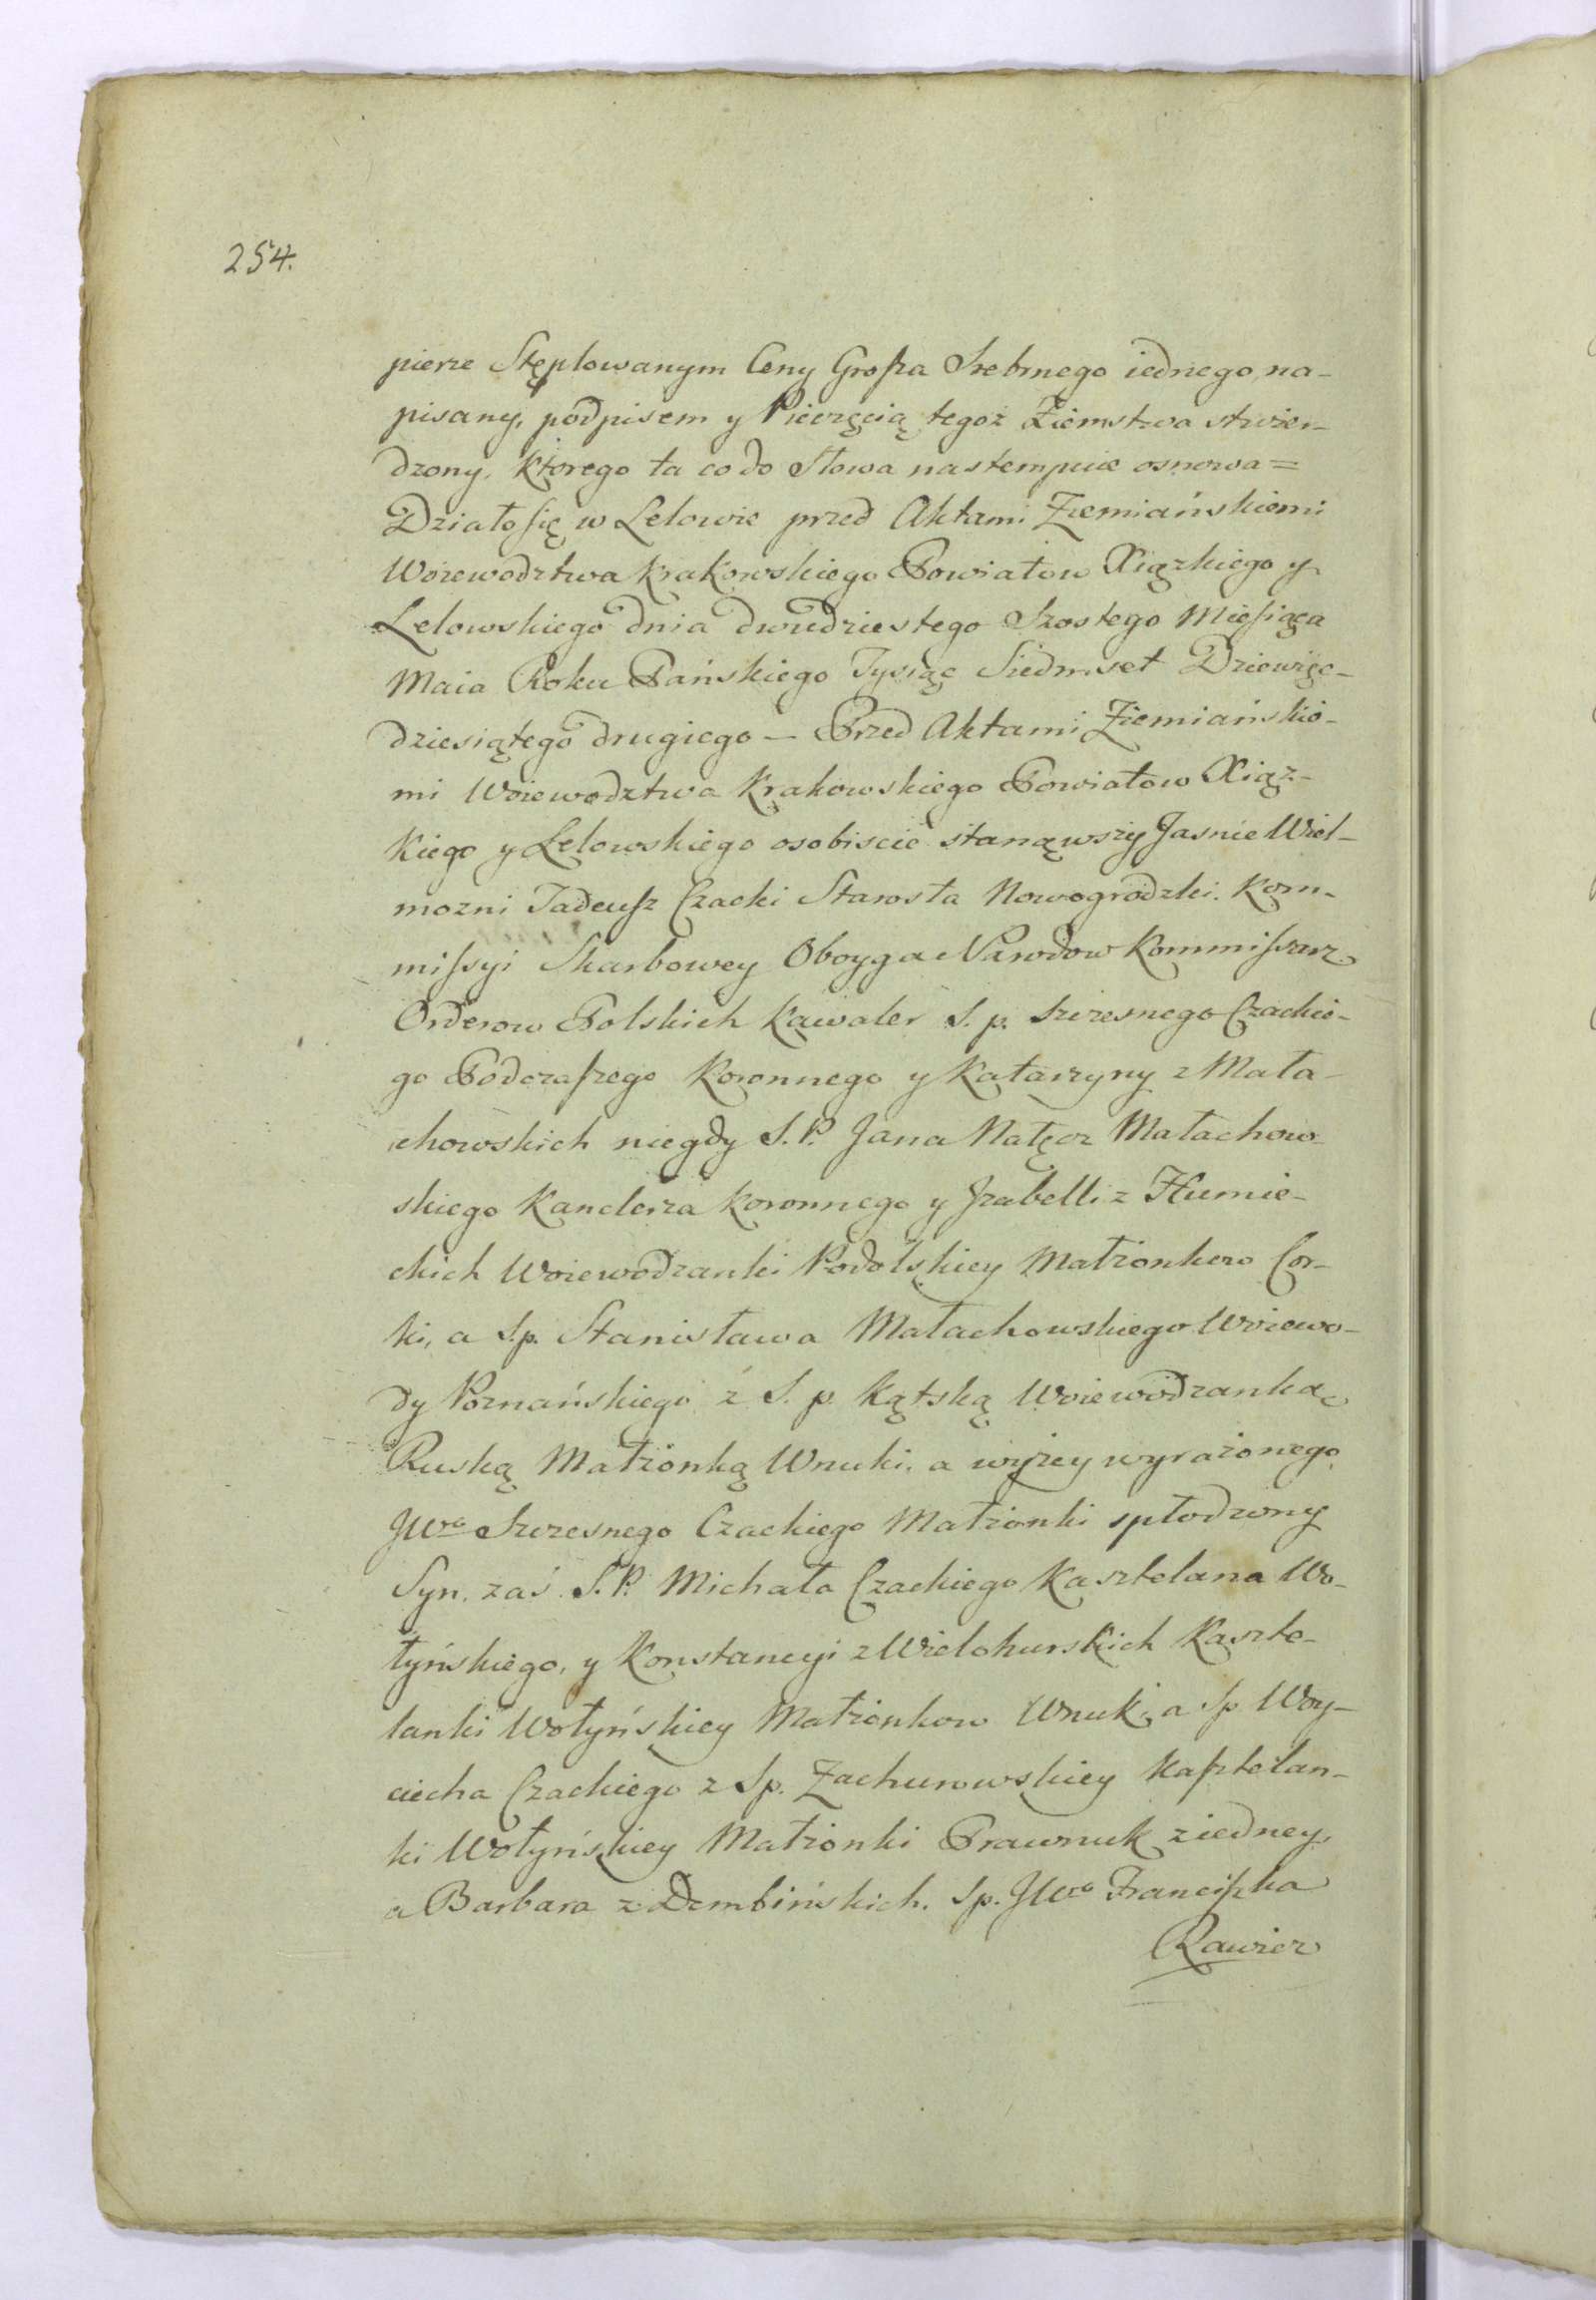 254.
pierze Stęplowanym Ceny Grosza Srebrnego iednego na-
pisany, podpisem y Pieczęcią tegoż Ziemstwa stwier-
dzony, ktorego ta co do Słowa nastempuie osnowa =
Działo się w Lelowie przed Aktami Ziemiańskiemi
Woiewodztwa Krakowskiego Powiatow Xiązkiego y
Lelowskiego dnia dwudziestego Szostego Miesiąca
Maia Roku Pańskiego Tysiąc Siedmset Dziewięc-
dziesiątego drugiego — Przed Aktami Ziemiańskie-
mi Woiewodztwa Krakowskiego Powiatow Xiąz-
kiego y Lelowskiego osobiscie stanąwszy Jasnie Wiel-
mozni Tadeusz Czacki Starosta Nowogrodzki. Kom-
missyi Skarbowey Oboyga Narodow Kommissarz
Orderow Polskich Kawaler S. p. Szczesnego Czackie-
go Podczaszego Koronnego y Katarzyny z Mała-
chowskich niegdy S. P. Jana Nałęcz Małachow-
skiego Kanclerza Koronnego y Izabelli z Humie-
ckich Woiewodzanki Podolskiey Małżonkow Cor-
ki, a Sp. Stanisława Małachowskiego Woiewo-
dy Poznańskiego z S. p. Kątską Woiewodzanką
Ruską Małżonką Wnuki, a wyżey wyrażonego
JWo Szczesnego Czackiego Małżonki spłodzony
Syn, zaś S. P. Michała Czackiego Kasztelana Wo-
łyńskiego, y Konstancyi z Wielohurskich Kaszte-
lanki Wołyńskiey Małżonkow Wnuk, a Sp Woy-
ciecha Czackiego z Sp. Zachurowskiey Kasztelan-
ki Wołyńskiey Małżonki Prawnuk ziedney,
a Barbara z Dembińskich. Sp. JWo Franciszka
Rawicz